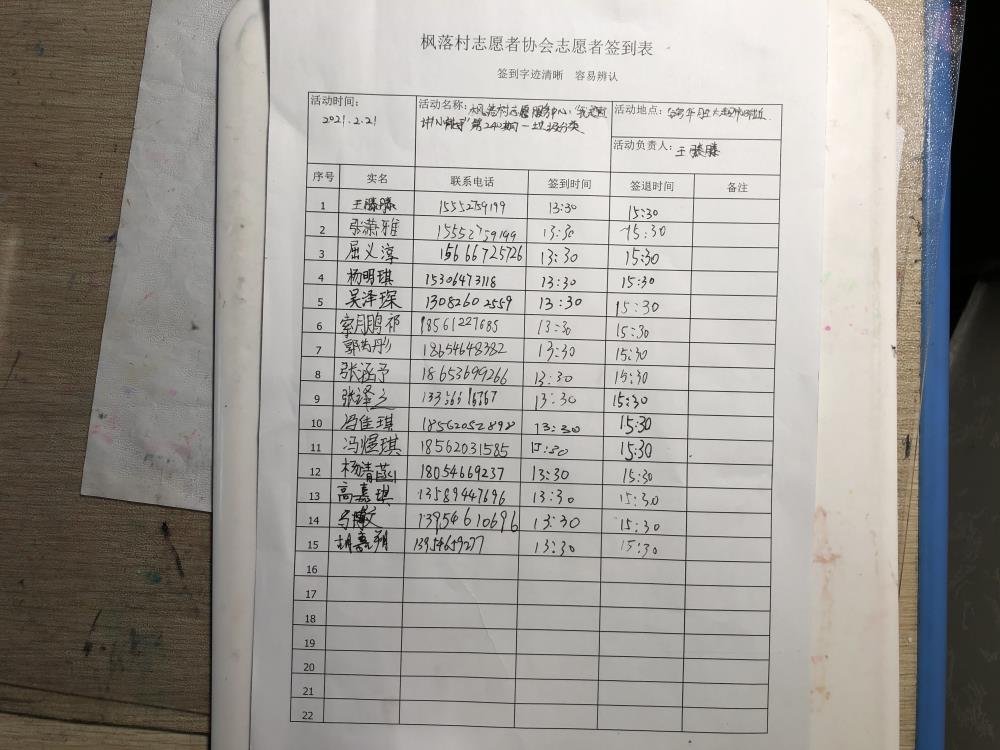 枫落村志愿者协会志愿者签到表
签到字迹清晰 容易辨认
活动时间: 2021.2.21
活动名称: 枫落村志愿服务中心 第240期—垃圾分类
活动地点:
活动负责人: 王滕滕
序号 实名 联系电话 签到时间 签退时间 备注
1 王滕滕 15552759199 13:30 15:30
2 张潇雅 15552759199 13:30 15:30
3 屈义淳 15666725726 13:30 15:30
4 杨明琪 15306473118 13:30 15:30
5 吴泽琛 13082602559 13:30 15:30
6 索月鹏祁 18561227685 13:30 15:30
7 18654648382 13:30 15:30
8 张涵予 18653699266 13:30 15:30
9 张泽立 13:30 15:30
10 冯佳琪 18562052898 13:30 15:30
11 冯煜琪 18562031585 15:30
12 杨清菡 18054669237 13:30 15:30
13 高嘉琪 13589447696 13:30 15:30
14 马博文 13954610696 13:30 15:30
15 胡嘉朔 13954659277 13:30 15:30
16
17
18
19
20
21
22